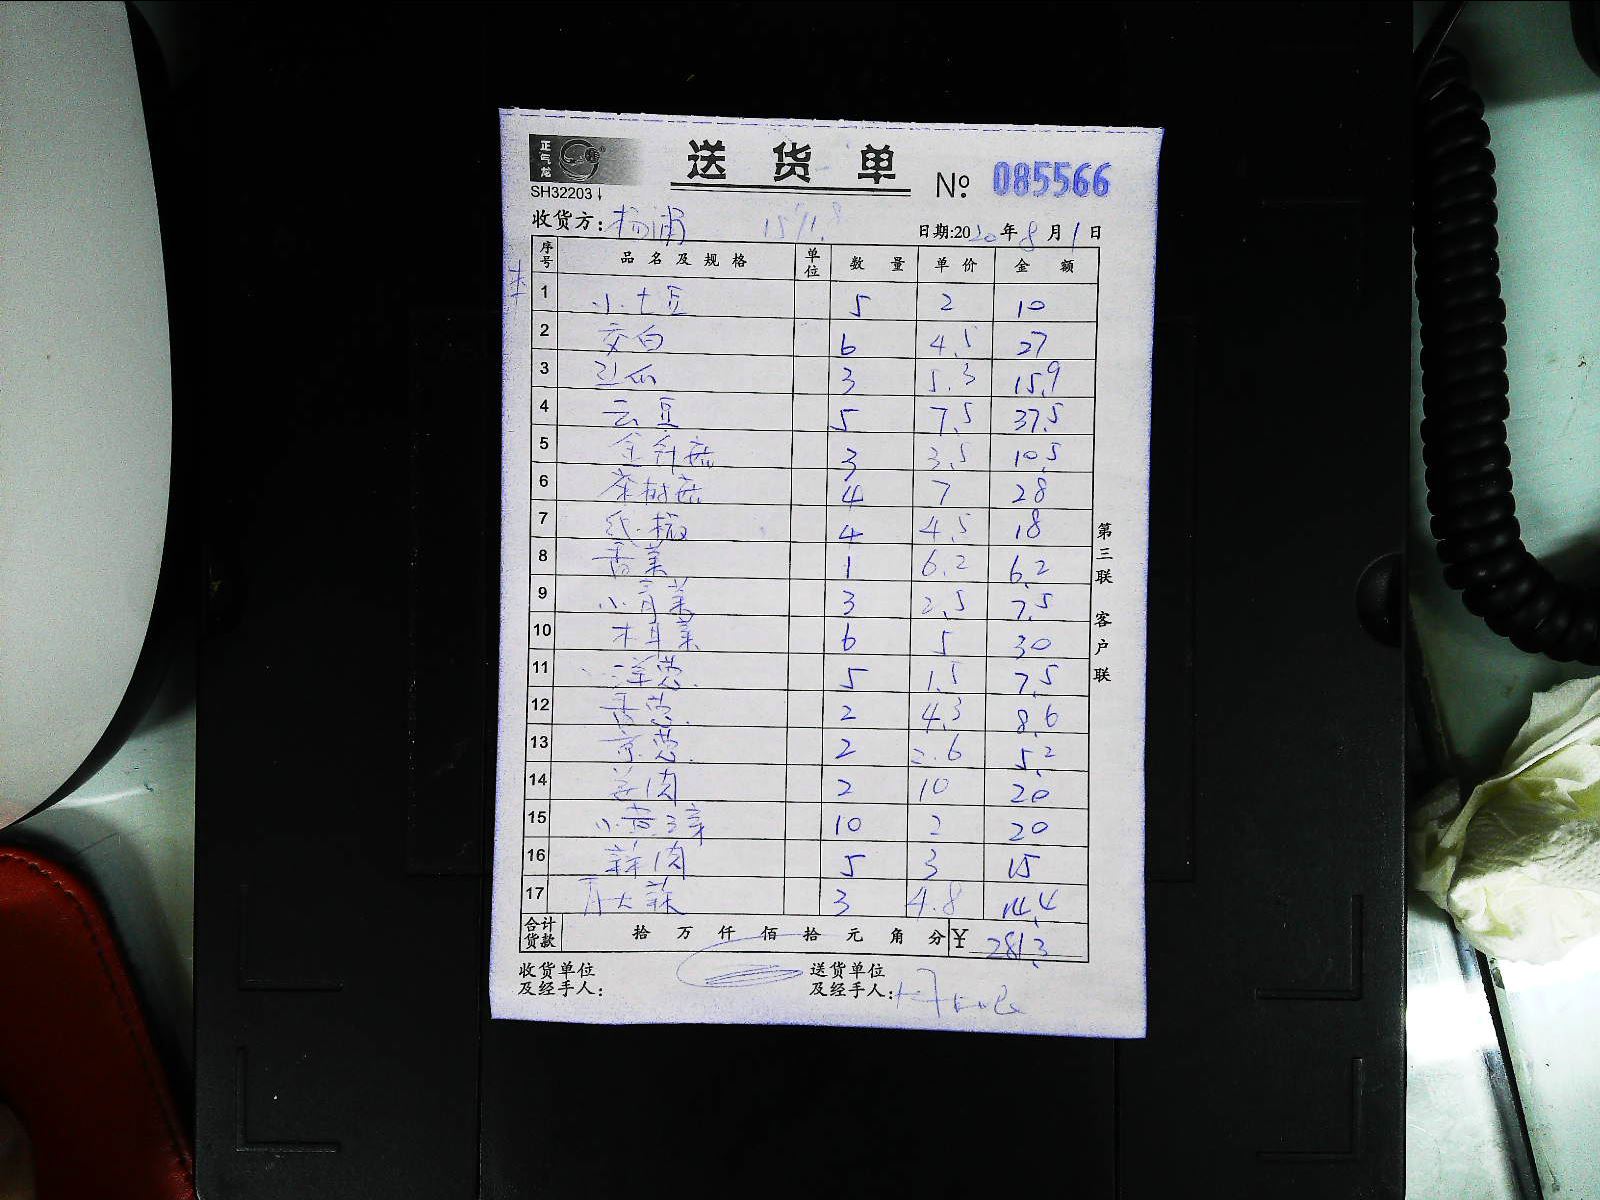 正气龙
送货单
№ 085566
SH32203
收货方：杨浦
日期:2020年8月1日
序号 品名及规格 单位 数量 单价 金额
1 小土豆 5 2 10
2 交白 6 4.5 27
3 瓜 3 5.3 15.9
4 云豆 5 7.5 37.5
5 金针菇 3 3.5 10.5
6 茶树菇 4 7 28
7 4 4.5 18
8 香菜 1 6.2 6.2
9 小青菜 3 2.5 7.5
10 木耳菜 6 5 30
11 洋葱 5 1.5 7.5
12 香葱 2 4.3 8.6
13 京葱 2 2.6 5.2
14 姜肉 2 10 20
15 小黄 10 2 20
16 蒜肉 5 3 15
17 大蒜 3 4.8 14.4
合计货款 拾 万 仟 佰 拾 元 角 分 ¥ 281.3
收货单位及经手人：
送货单位及经手人：
第三联 客户联